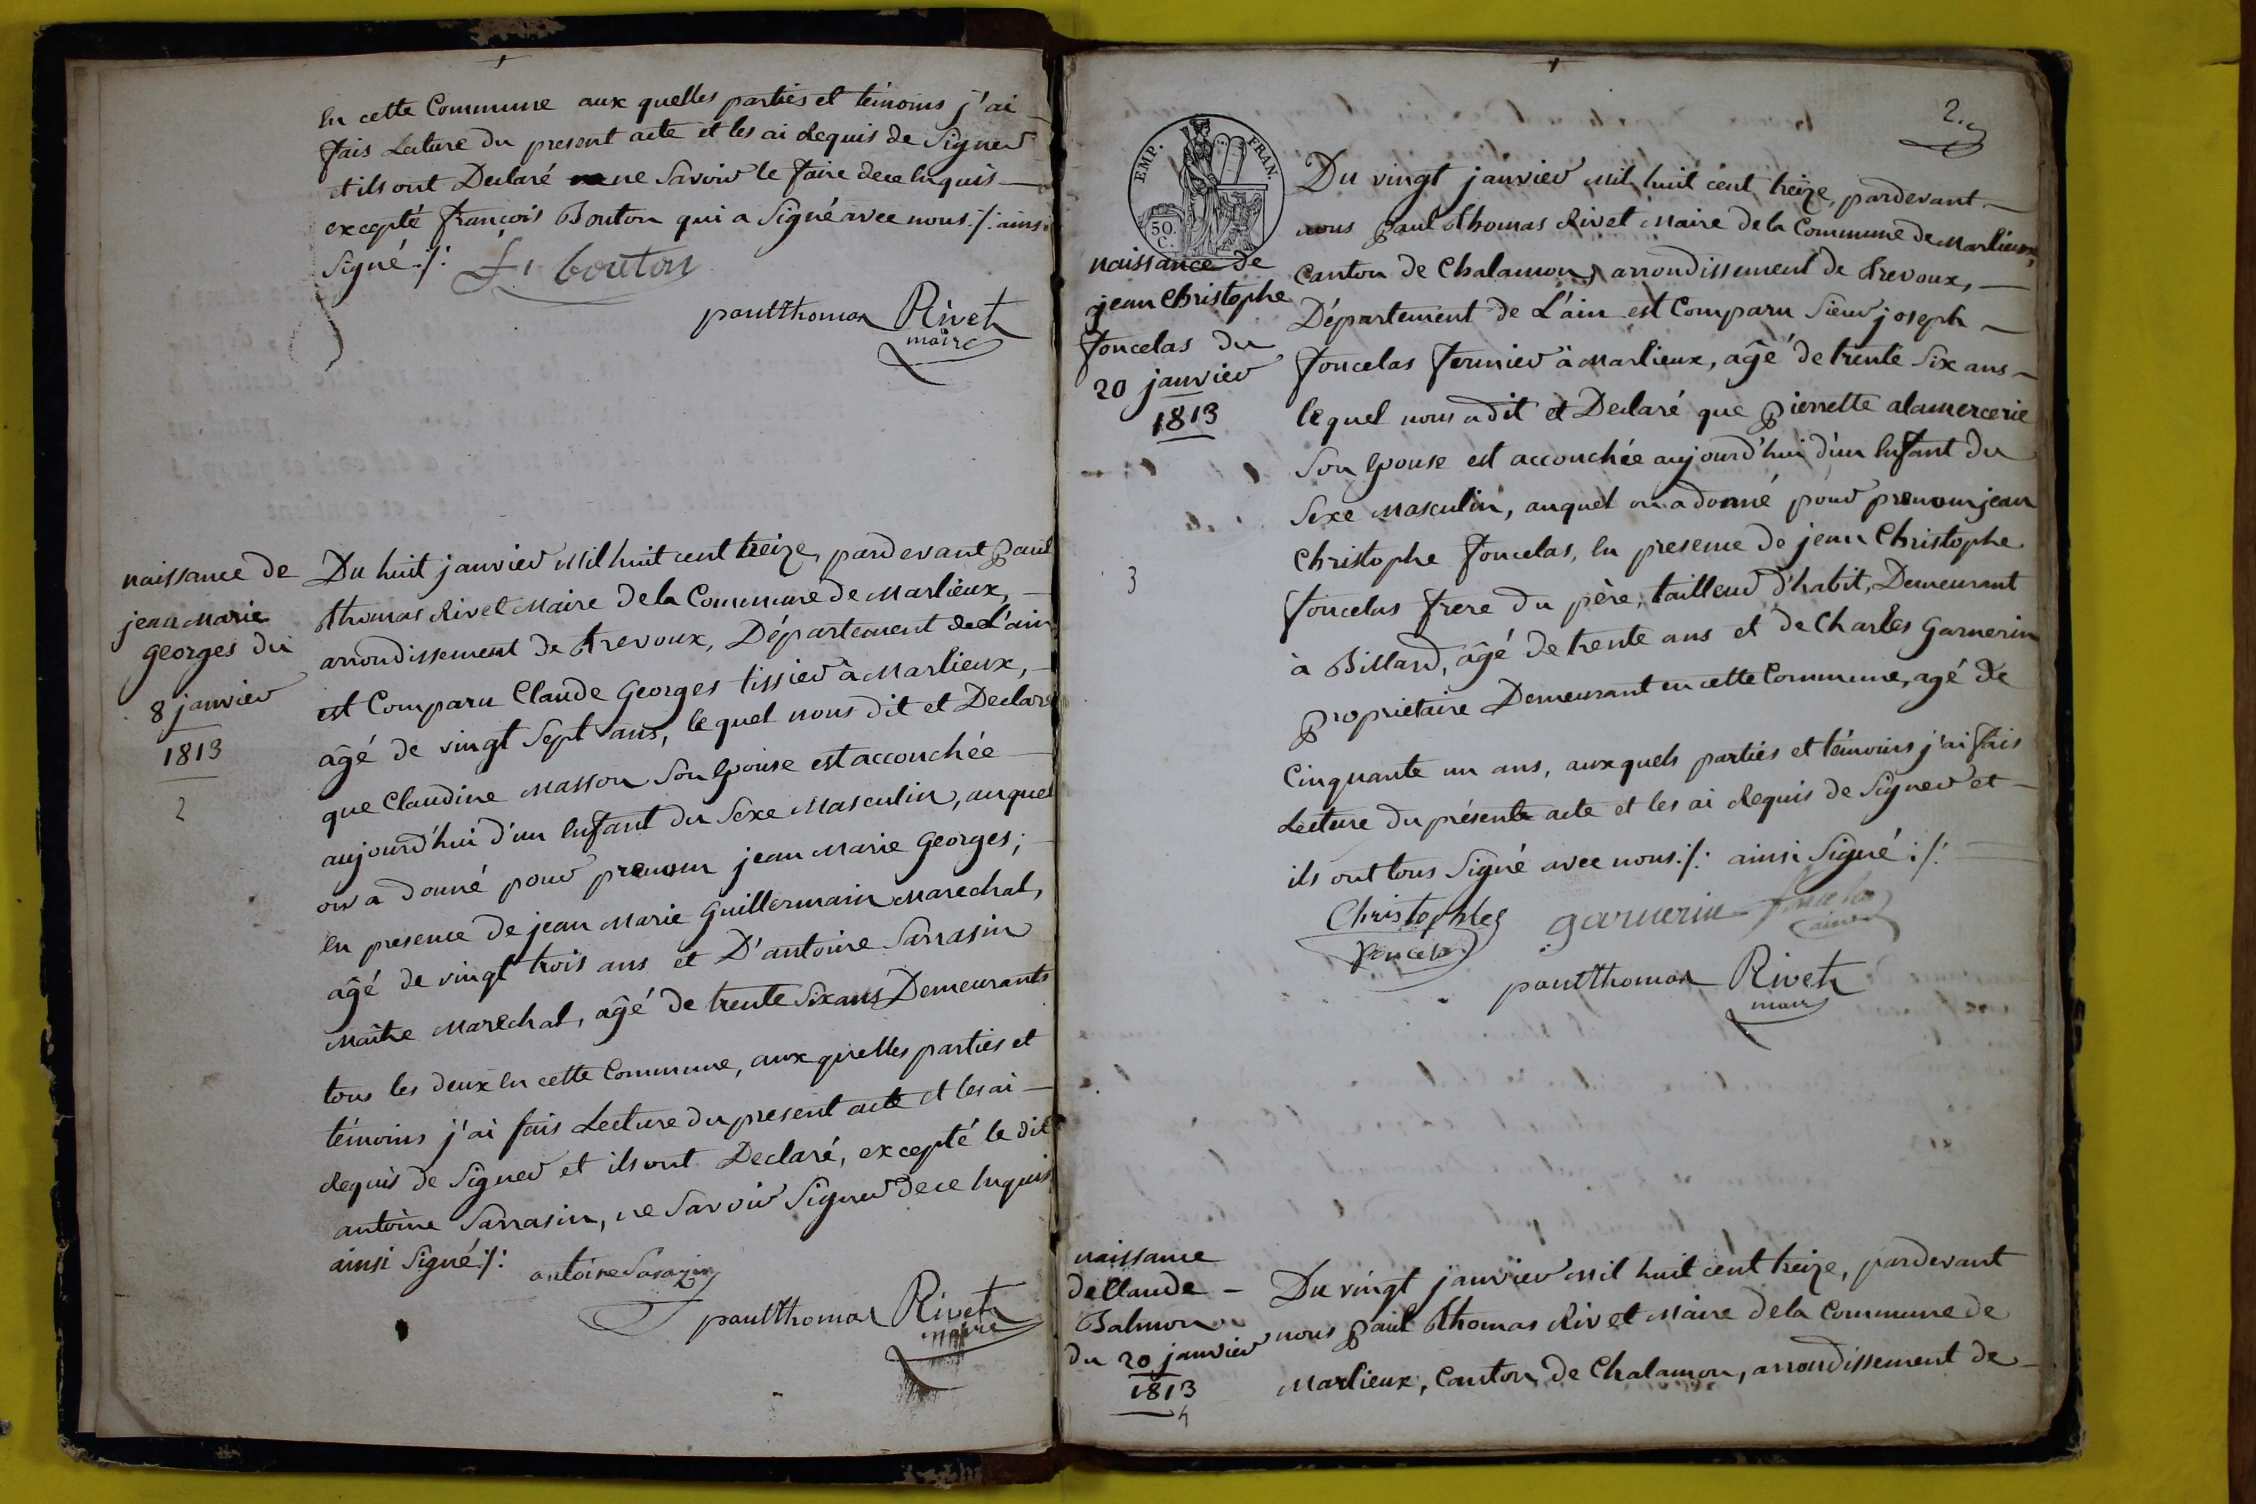 En cette Commune aux quelles parties et témoins j'ai
fais Lecture du present acte et les ai Requis de Signer
et ils ont Declaré ne Savoir le faire de ce Enquis —
excepté françois Bouton qui a Signé avec nous :/: ainsi
Signé :/: fr bouton
paul thomas Rivet
maire
naissance de
jean Marie
georges du
8 janvier
1813
2
Du huit janvier Mil huit cent treize, pardevant Paul
thomas Rivet Maire de la Commune de Marlieux, —
arrondissement de trevoux, Département de L'ain
est Comparu Claude Georges tissier à Marlieux, —
âgé de vingt Sept ans, le quel nous dit et Declaré
que Claudine Masson Son Epouse est accouchée —
aujourd'hui d'un Enfant du Sexe Masculin, auquel
on a donné pour prenom jean Marie Georges; —
En presence de jean Marie Guillermain Marechal,
âgé de vingt trois ans et D'antoine Sarrasin
Maître Marechal, âgé de trente Six ans Demeurants
tous les deux En cette Commune, aux quelles parties et
témoins j'ai fais Lecture du present acte et les ai —
Requis de Signer et ils ont Declaré, excepté le dit
antoine Sarrasin, ne Savoir Signer de ce Enquis
ainsi Signé :/:
antoine Sarazin
paul thomas Rivet
maire
2.e
EMP. FRAN.
50.
C.
naissance de
jean Christophe
foncelas du
20 janvier
1813
3
Du vingt janvier Mil huit cent treize, pardevant —
nous Paul thomas Rivet Maire de la Commune de Marlieux,
Canton de Chalamon, arrondissement de trevoux, —
Département de L'ain est Comparu Sieur joseph —
foncelas fermier à Marlieux, âgé de trente Six ans —
lequel nous a dit et Declaré que Pierrette alamercerie
Son Epouse est accouchée aujourd'hui d'un Enfant du
Sexe Masculin, auquel on a donné pour prenom jean
Christophe foncelas, En presence de jean Christophe
foncelas frere du père, tailleur d'habit, Demeurant
à Billard, âgé de trente ans et de Charles Garnerin
Proprietaire Demeurant en cette Commune, agé de
Cinquante un ans, aux quels parties et témoins j'ai fais
Lecture du présente acte et les ai Requis de Signer et —
ils ont tous Signé avec nous :/: ainsi Signé :/: —
Christophle garnerin foncelas
foncelas ainé
paul thomas Rivet
maire
naissance
de Claude —
Balmon
du 20 janvier
1813
4
Du vingt janvier Mil huit cent treize, pardevant
nous Paul thomas Rivet Maire de la Commune de
Marlieux, Canton de Chalamon, arrondissement de —